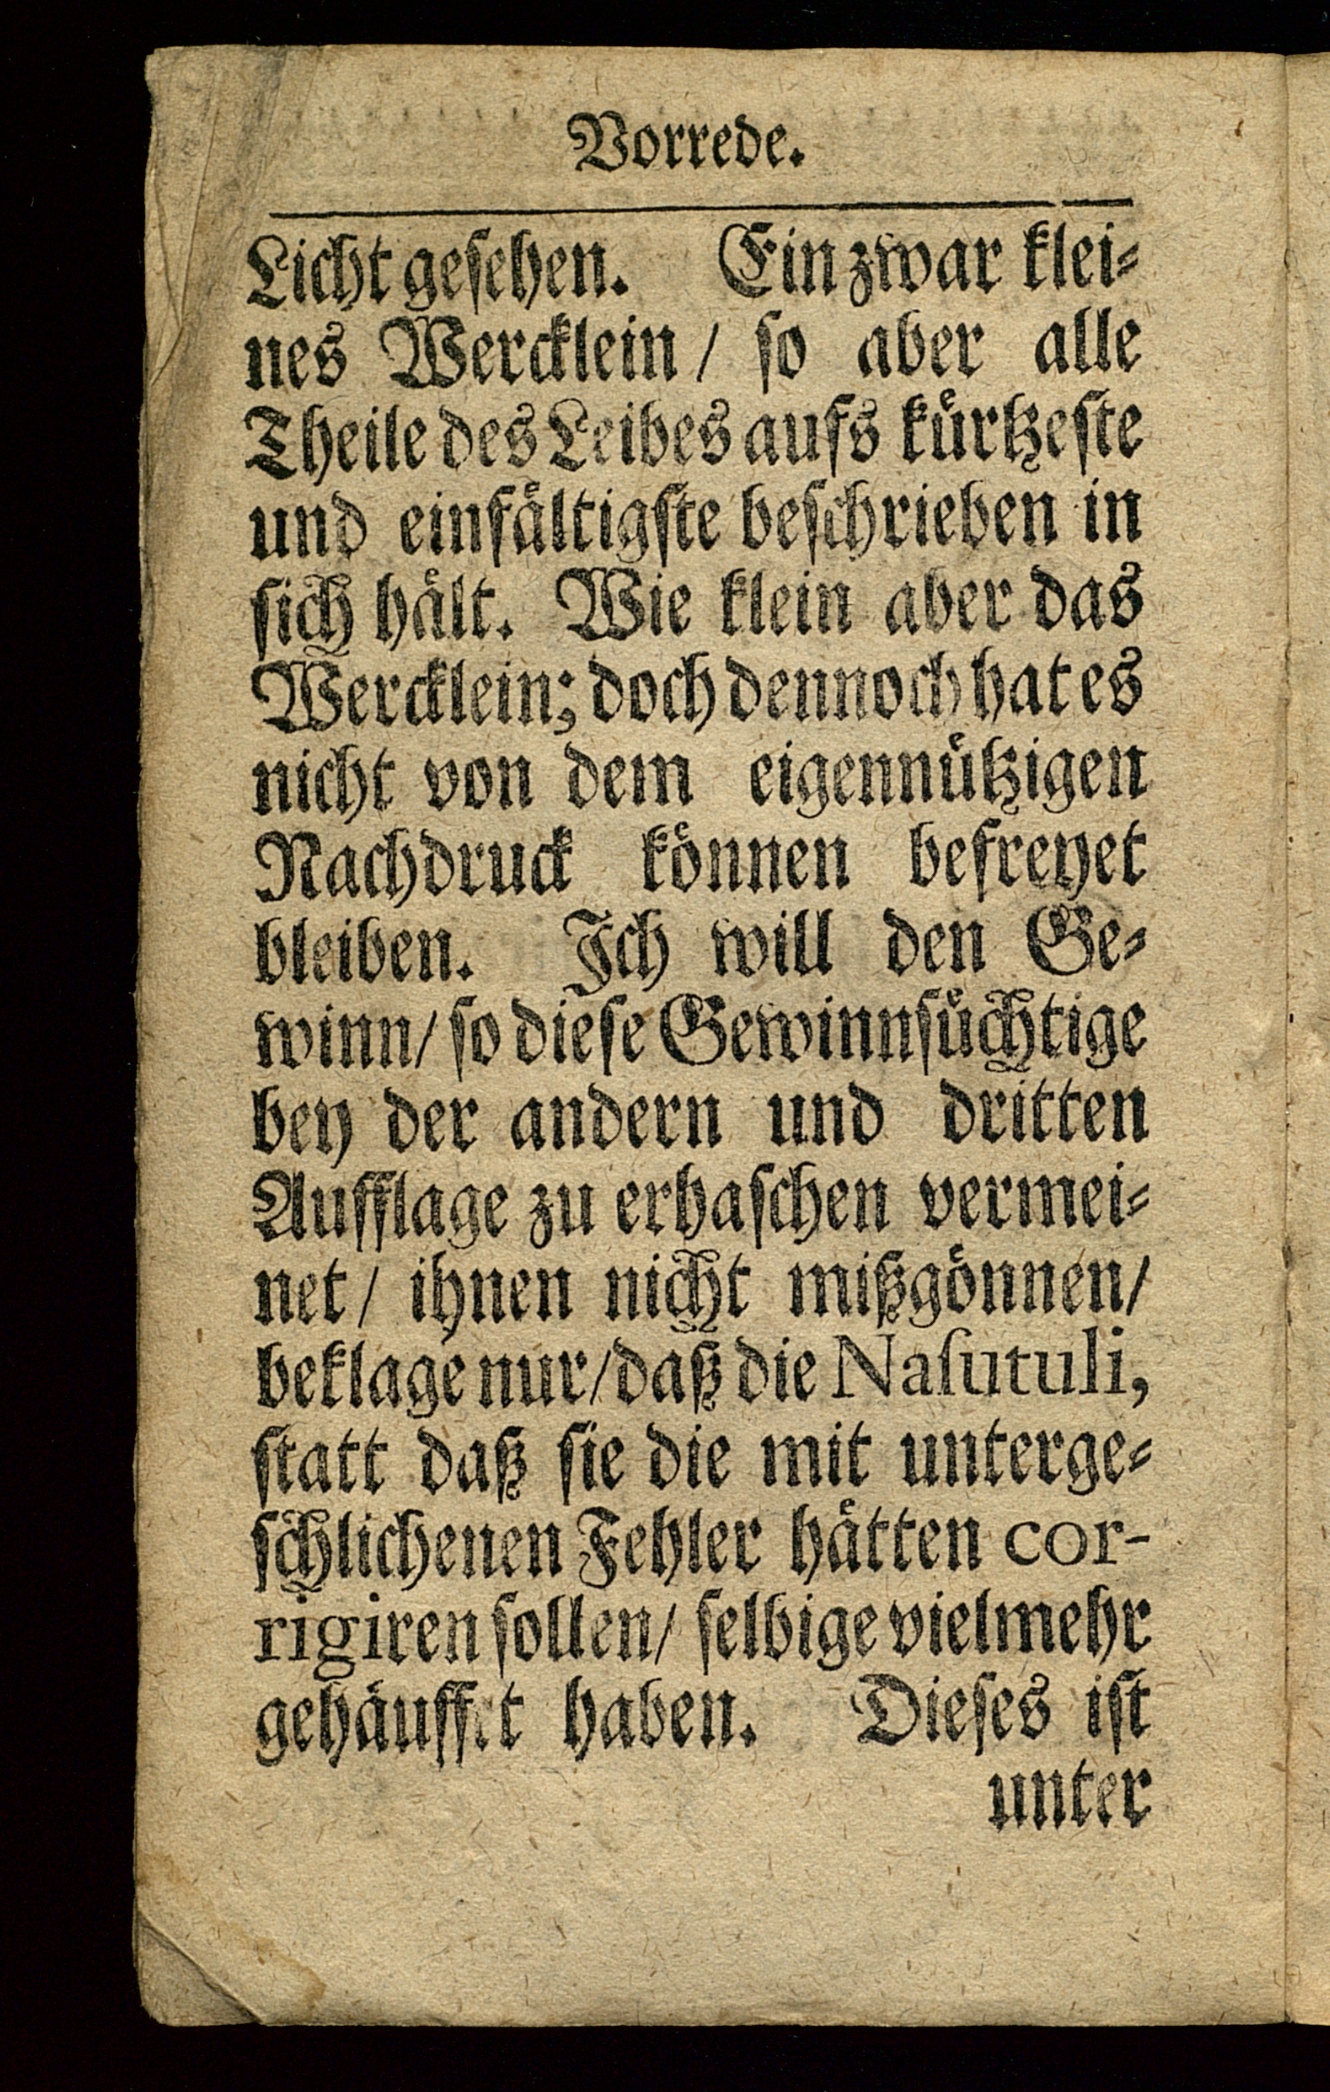 Vorrede.
Licht geſehen. Ein zwar klei⸗
nes Wercklein / ſo aber alle
Theile des Leibes aufs kuͤrtzeſte
und einfaͤltigſte beſchrieben in
ſich haͤlt. Wie klein aber das
Wercklein; doch dennoch hat es
nicht von dem eigennuͤtzigen
Nachdruck koͤnnen befreyet
bleiben. Ich will den Ge⸗
winn / ſo dieſe Gewinnſuͤchtige
bey der andern und dritten
Aufflage zu erhaſchen vermei⸗
net / ihnen nicht mißgoͤnnen /
beklage nur / daß die Naſutuli,
ſtatt daß ſie die mit unterge⸗
ſchlichenen Fehler haͤtten cor-
rigiren ſollen / ſelbige vielmehr
gehaͤuffet haben. Dieſes iſt
unter